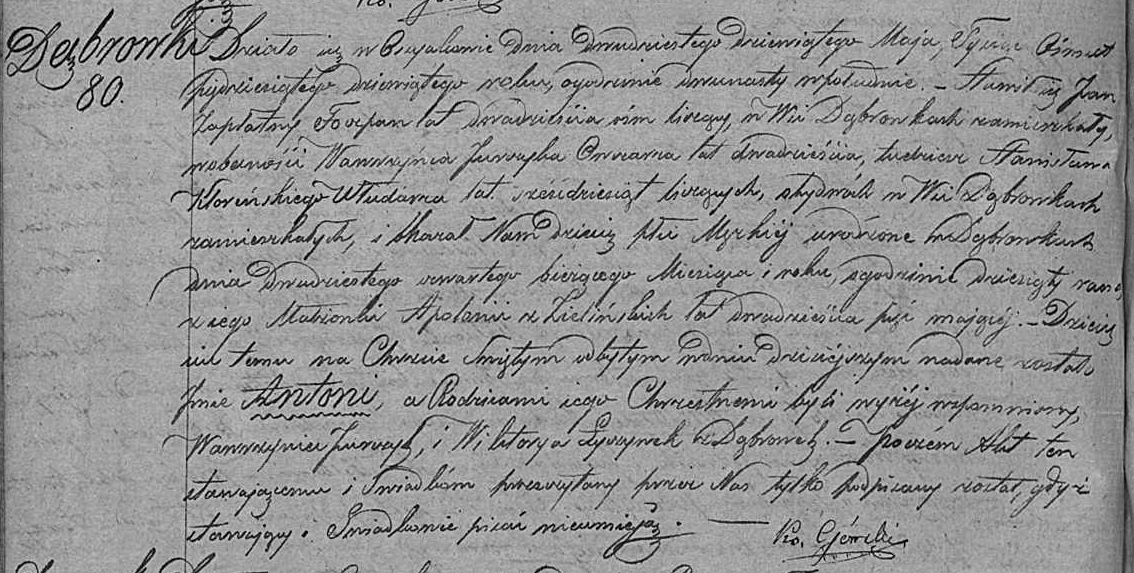 Dąbrowki
80.
Działo się w dnia dwudziestego dziewiątego Maja, Tysiąc Ośmset
pięćdziesiątego dziewiątego roku, o godzinie dwunasty w południe. – Stawił się Jan
Zapłatny, lat dwadzieścia ośm liczący, w Wsi Dąbrowkach zamieszkały,
w obecności Wawrzyńca Owczarza lat dwadzieścia, tudzież Stanisława
Włudarza lat sześćdziesiąt liczących, obydwóch w Wsi Dąbrowkach
zamieszkałych, i okazał Nam dziecię płci Męzkiéj urodzone w Dąbrowkach
dnia dwudziestego czwartego bieżącego Miesiąca i roku, o godzinie dziesiąty rano
z jego Małżonki Apolonii z Zielińskich lat dwadzieścia pięć mającéj. – Dziecię
ciu temu na Chrzcie Świętym odbytym w dniu dzisiéjszym nadane zostało
Imie Antoni, a Rodzicami jego Chrzestnemi byli wyżéj wspomniony,
Wawrzyniec i Wiktorya z Dąbrowek. – Poczém Akt ten
stawającemu i Świadkóm przeczytany przez Nas tylko podpisany został, gdyż
stawający i Świadkowie pisać nieumieją.
Xs. Górski